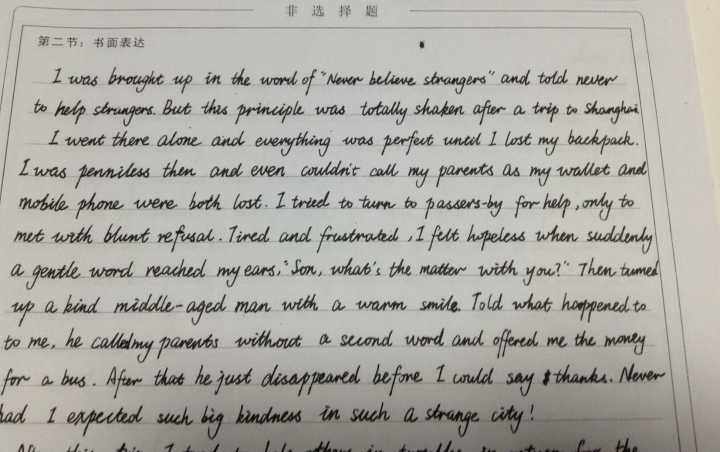 非选择题
第二节：书面表达
I was brought up in the word of "Never believe strangers" and told never
to help strangers. But this principle was totally shaken after a trip to Shanghai
I went there alone and everything was perfect until I lost my backpack.
I was penniless then and even couldn't call my parents as my wallet and
mobile phone were both lost. I tried to turn to passers-by for help, only to
met with blunt refusal. Tired and frustrated, I felt hopeless when suddenly
a gentle word reached my ears, "Son, what's the matter with you?" Then turned
up a kind middle-aged man with a warm smile. Told what happened to
to me, he called my parents without a second word and offered me the money
for a bus. After that he just disappeared before I could say thanks. Never
had I expected such big kindness in such a strange city!
After this trip, I